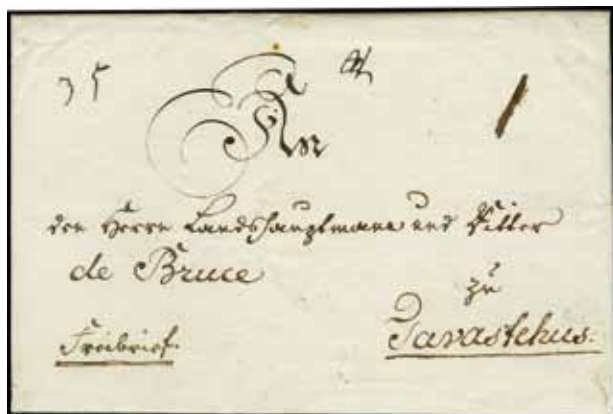 35
An
den Herrn Landshauptmann und Ritter
de Bruce
zu
Tavastehus.
Freibrief.